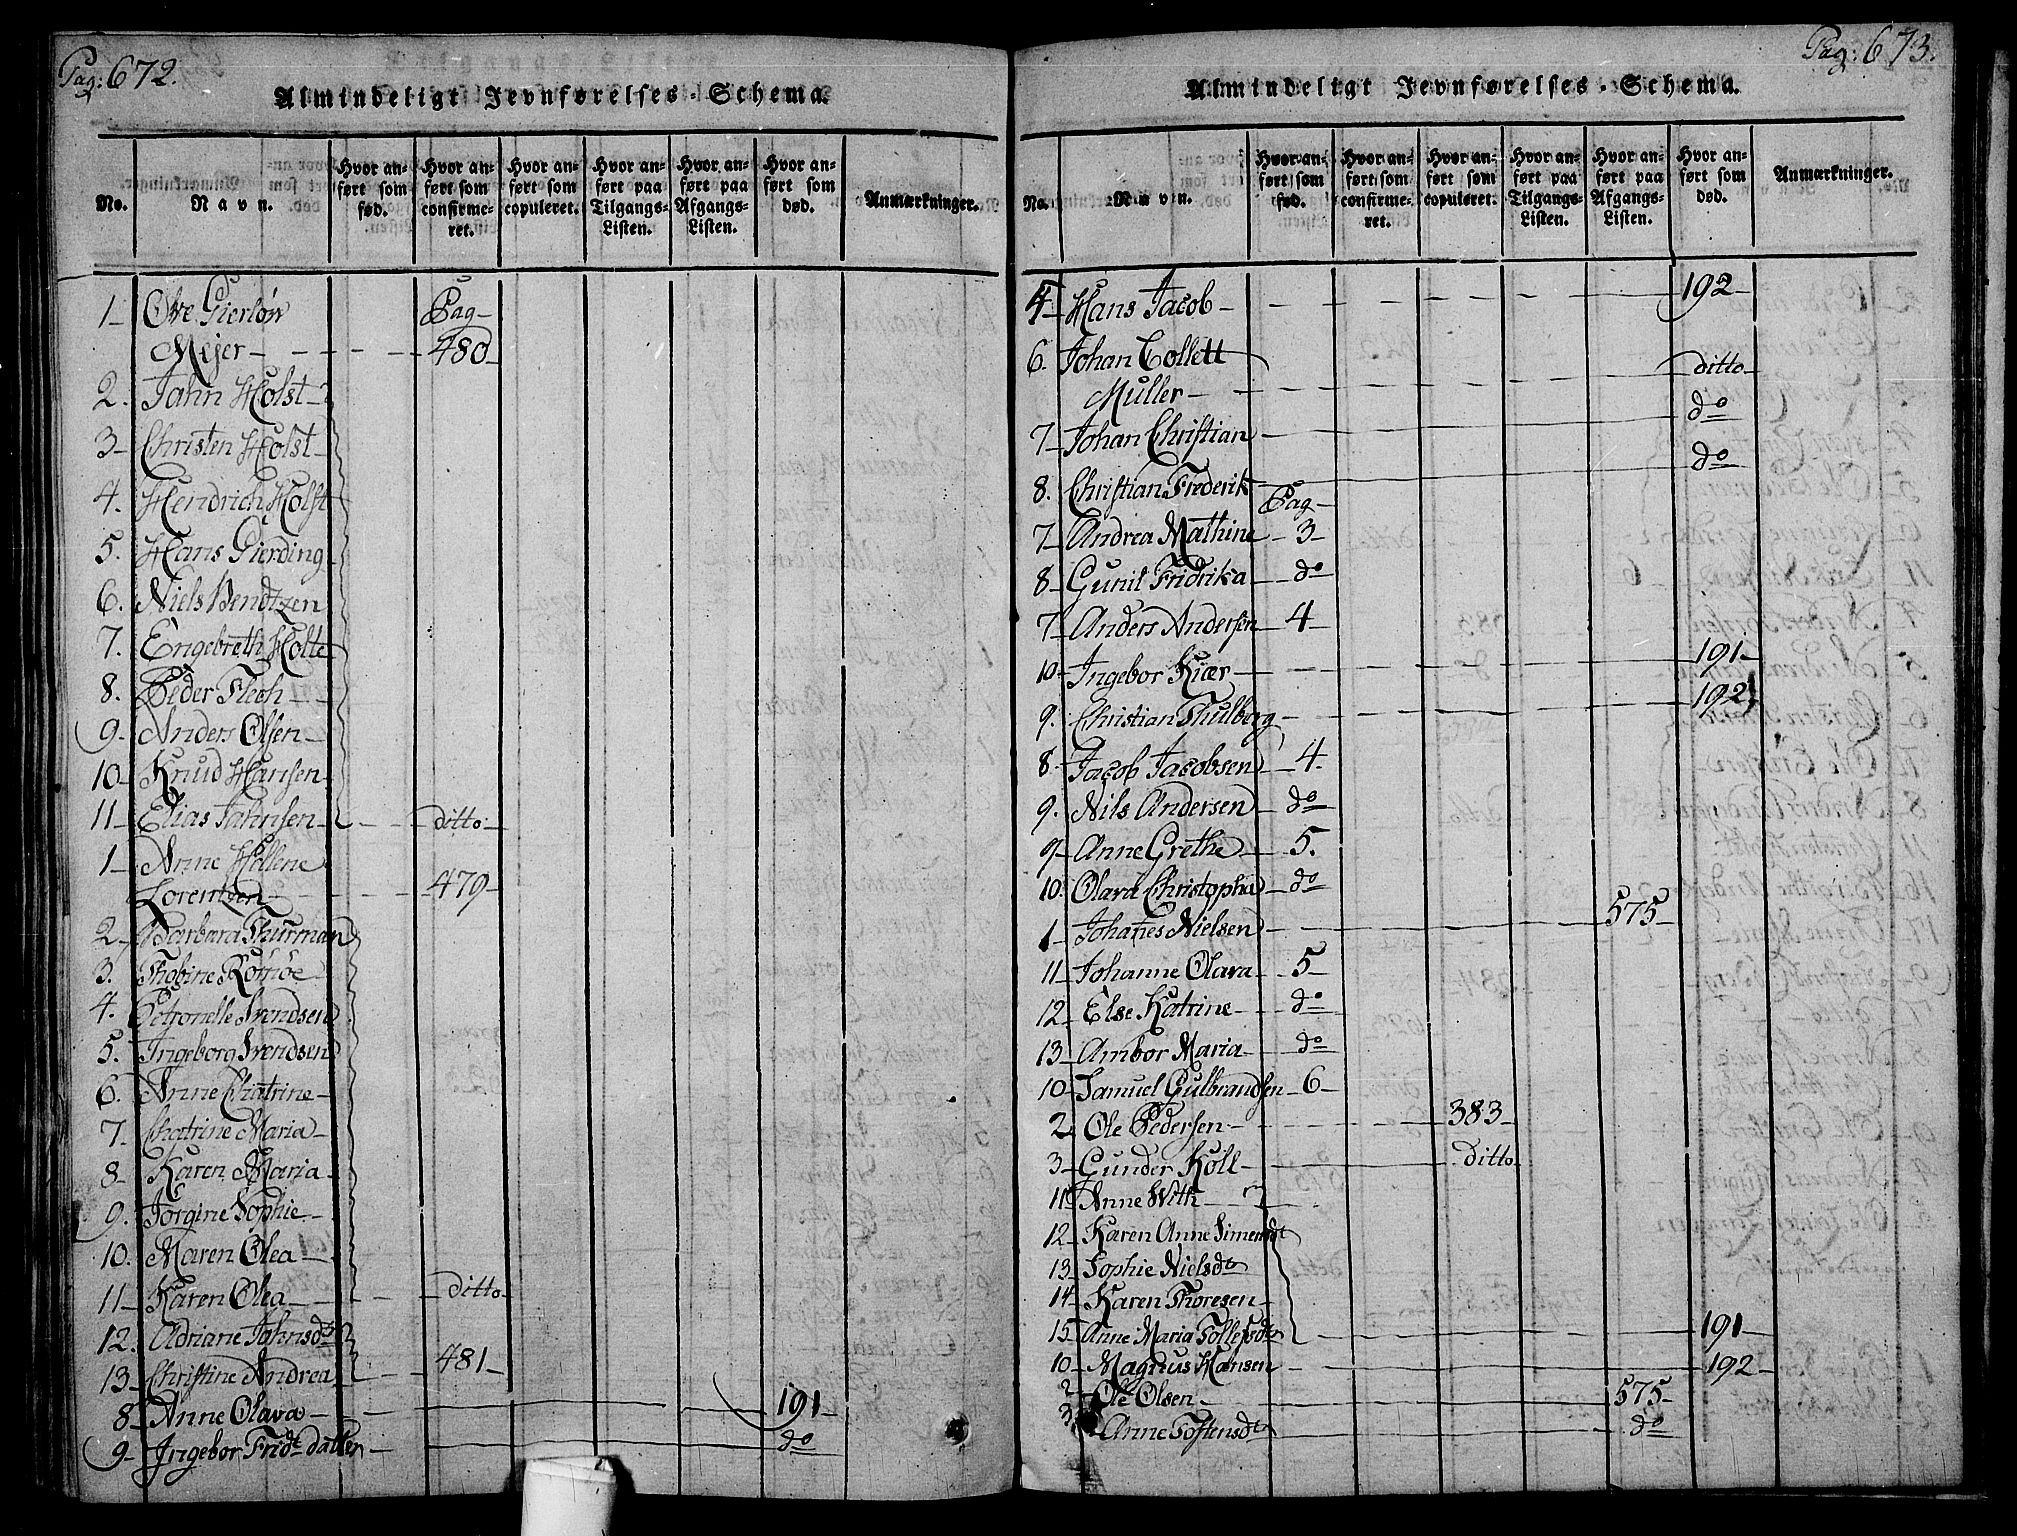 Pag: 672.
Almindeligt Jevnførelses-Schema.
No.
Navn.
Hvor anført som fød.
Hvor anført som confirmeret.
Hvor anført som copuleret.
Hvor anført paa Tilgangs-Listen.
Hvor anført paa Afgangs-Listen.
Hvor anført som død.
Anmærkninger.
1 Ove Gierløw Pag
Mejer 480
2. Jahn Holst
3 Christen Holst
4. Hendrich Holst
5. Hans Gierding
6. Niels Bendtzen
7. Engebreth Holte
8. Peder Flech
9 Anders Olsen
10 Knud Hansen
11 Elias Jahnsen ditto
1 Anne Hellene
Lorentzen 479
2 Barbara Thurman
3. Thobine Romøe
4. Petronelle Svendsen
5. Ingeborg Svendsen
6. Anne Chatrine
7 Chatrine Maria
8 Karen Maria
9. Jørgine Sophie
10. Maren Olea
11 Karen Olea ditto
12. Adriane Jahnsdt
13 Christine Andrea 481
8 Anne Olava 191
9 Ingebor Fridt datter do
Pag: 673.
Almindeligt Jevnførelses-Schema.
No.
Navn.
Hvor anført som fød.
Hvor anført som confirmeret.
Hvor anført som copuleret.
Hvor anført paa Tilgangs-Listen.
Hvor anført paa Afgangs-Listen.
Hvor anført som død.
Anmærkninger.
Hans Jacob 192
6. Johan Collett ditto
Muller
7 Johan Christian do
8. Christian Frederik do
Pag
7 Andrea Mathine 3
8 Gunil Fridrika do
7 Anders Andersen 4
10 Ingebor Kiær 191
9. Christian Thulberg 192
8. Jacob Jacobsen 4
9. Nils Andersen do
9 Anne Grethe 5.
10. Olava Christopha do
1 Johanes Nielsen 575
11 Johanne Olava 5
12 Else Katrine do
13 Ambor Maria do
10 Samuel Gulbrandsen 6
2 Ole Pedersen 383
3 Gunder Koll ditto
11 Anne With
12 Karen Anne Simensdt
13 Sophie Nielsdt
14 Karen Thoresen
15 Anne Maria Tollefsdt 191
10 Magnus Hansen 192
2 Ole Olsen 575
3 Anne Toftensdt do